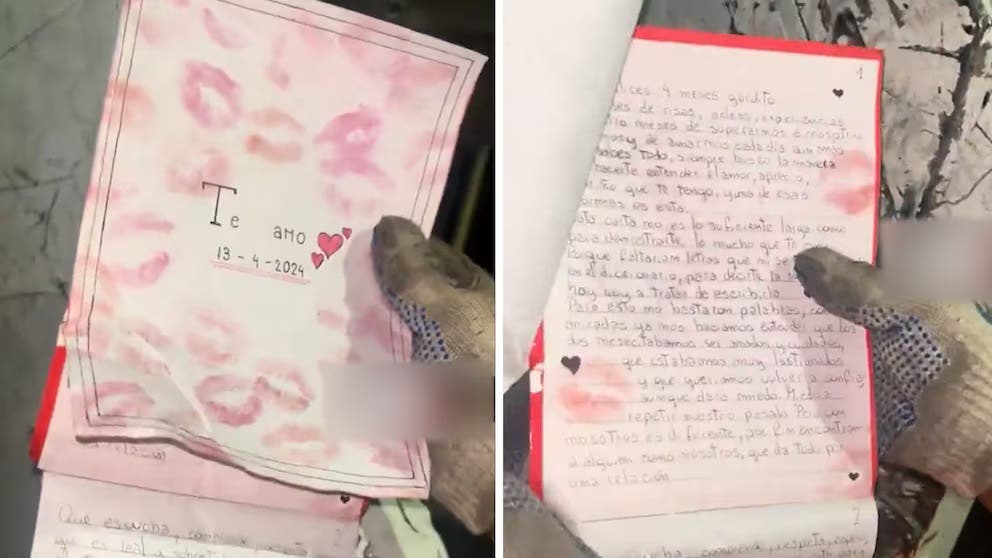 Te amo
13-4-2024
Que escucha,
que es leal y
1
4 meses gordito
de risas, experiencias
meses de superarnos a nosotros
y de amarnos cada día aun más
Todo, siempre busco la manera
hacerte entender el amor,
que te tengo, y una de esas
es esta.
carta no es lo suficiente larga como
para demostrarte lo mucho que te
Porque faltarian letras
en el diccionario, para decirte
hoy voy a tratar de escribirlo
Pero esto no bastaron palabras, con
miradas ya nos haciamos entender que los
dos necesitabamos ser amados y cuidados,
que estabamos muy lastimados
y que queriamos volver a confiar,
aunque daba miedo
repetir nuestro pasado Pero
nosotros es diferente, por fin encontramos
a alguien como nosotros, que da todo por
una relación
2
respeta,